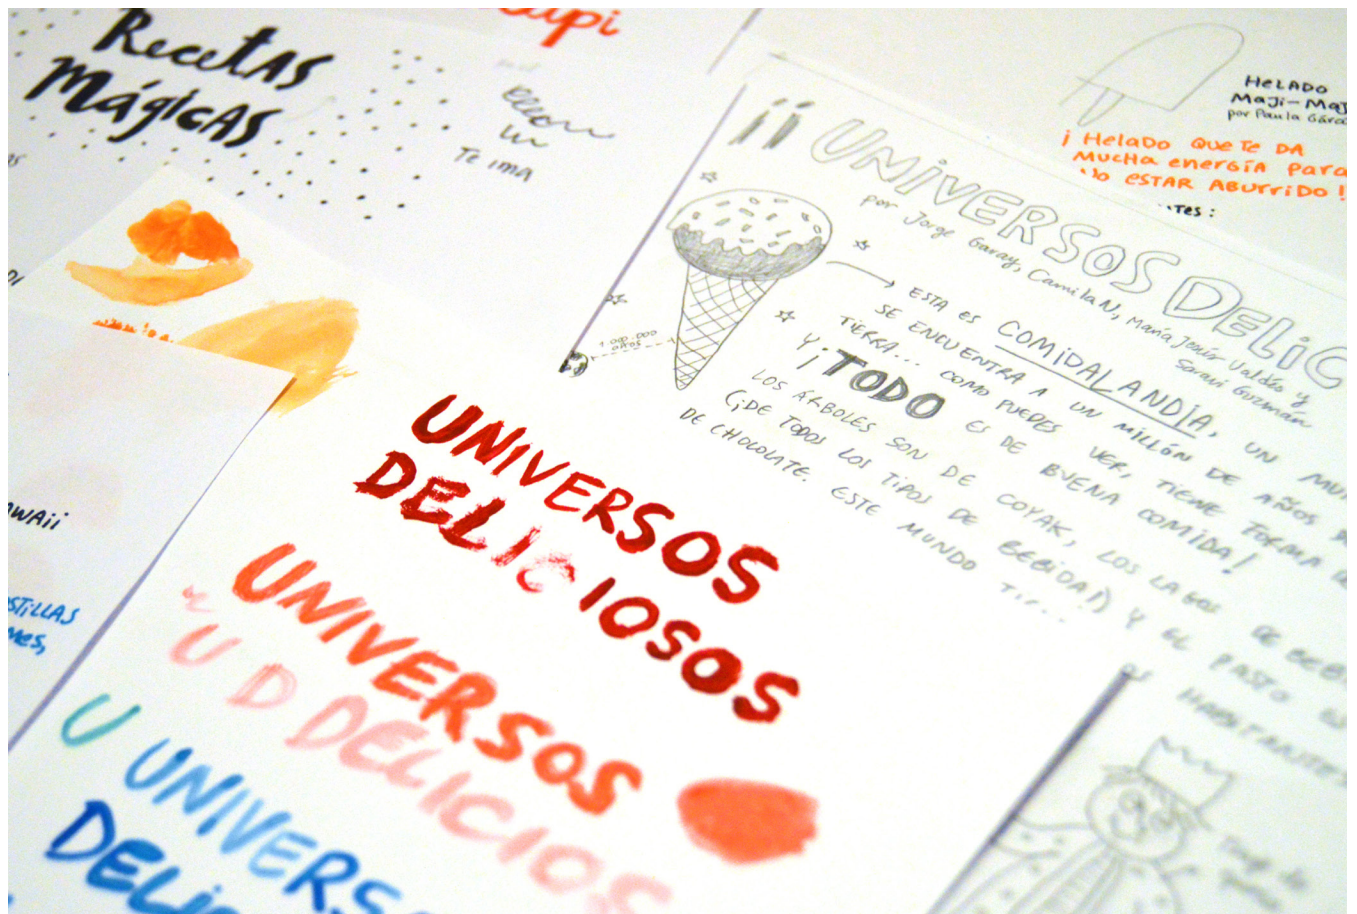 Recetas
Mágicas
Te ima
HELADO
MAJi-MAJ
por Paula
¡ HELADO QUE TE DA
MUCHA ENERGÍA PARA
No ESTAR ABURRIDO !
TES :
¡¡ UNIVERSOS DELIC
por Jorge Garay, Camila N, María Jesús Valdés y
Guzmán
1.000.000
AÑOS
ESTA ES COMIDALANDIA, UN MU
SE ENCUENTRA A UN MILLÓN DE AÑOS D
TIERRA... COMO PUEDES VER, TIENE FORMA
Y ¡TODO ES DE BUENA COMIDA!
LOS ÁRBOLES SON DE COYAK, LOS LAGOS DE BEBI
(¡DE TODOS LOS TIPOS DE BEBIDA!) Y EL PASTO ES
DE CHOCOLATE. ESTE MUNDO
HABITANTES
WAii
STILLAS
MES,
UNIVERSOS
DELICIOSOS
UNIVERSOS
U D DELICIOS
U UNIVERS
DELIC